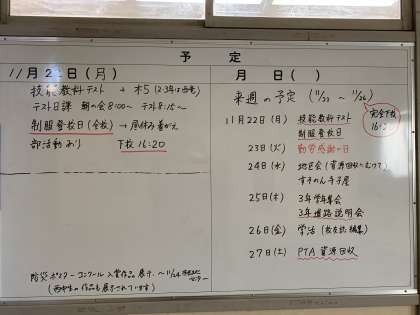 予定
11月22日(月)
技能教科テスト + 木5 (2・3年は西竜)
テスト日課 朝の会8:00〜 テスト8:15〜
制服登校日(全校) → 昼休み着がえ
部活動あり 下校 16:20
防災ポスターコンクール入賞作品展示
(西中生の作品も展示されています)
月 日( )
来週の予定 (11/22 〜 11/26)
完全下校
11月22日(月) 技能教科テスト
制服登校日
23日(火) 勤労感謝の日
24日(水) 地区会(資源回収にむけて)
すずのん寺子屋
25日(木) 3年学年集会
3年進路説明会
26日(金) 学活
27日(土) PTA資源回収